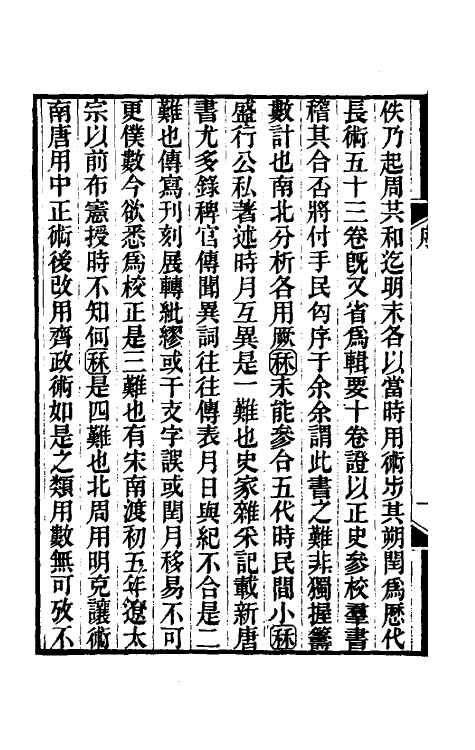 佚乃起周共和迄明末各以當時用術步其朔閏爲歷代
長術五十三卷旣又省爲輯要十卷證以正史參校羣書
稽其合否將付手民匃序于余余謂此書之難非獨握籌
數計也南北分析各用厥秝未能參合五代時民間小秝
盛行公私著述時月互異是一難也史家雜采記載新唐
書尤多錄稗官傳聞異詞往往傳表月日與紀不合是二
難也傳寫刊刻展轉紕繆或干支字誤或閏月移易不可
更僕數今欲悉爲校正是三難也有宋南渡初五年遼太
宗以前布憲授時不知何秝是四難也北周用明克讓術
南唐用中正術後改用齊政術如是之類用數無可攷不